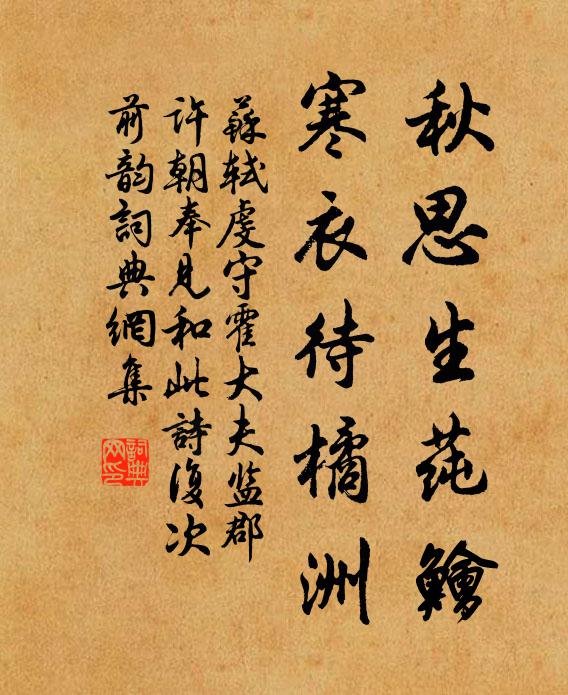 秋思生莼鱠
寒衣待橘洲
蘇軾虔守霍大夫监郡
许朝奉見和此詩復次
前韵詞典網集
詞典网印